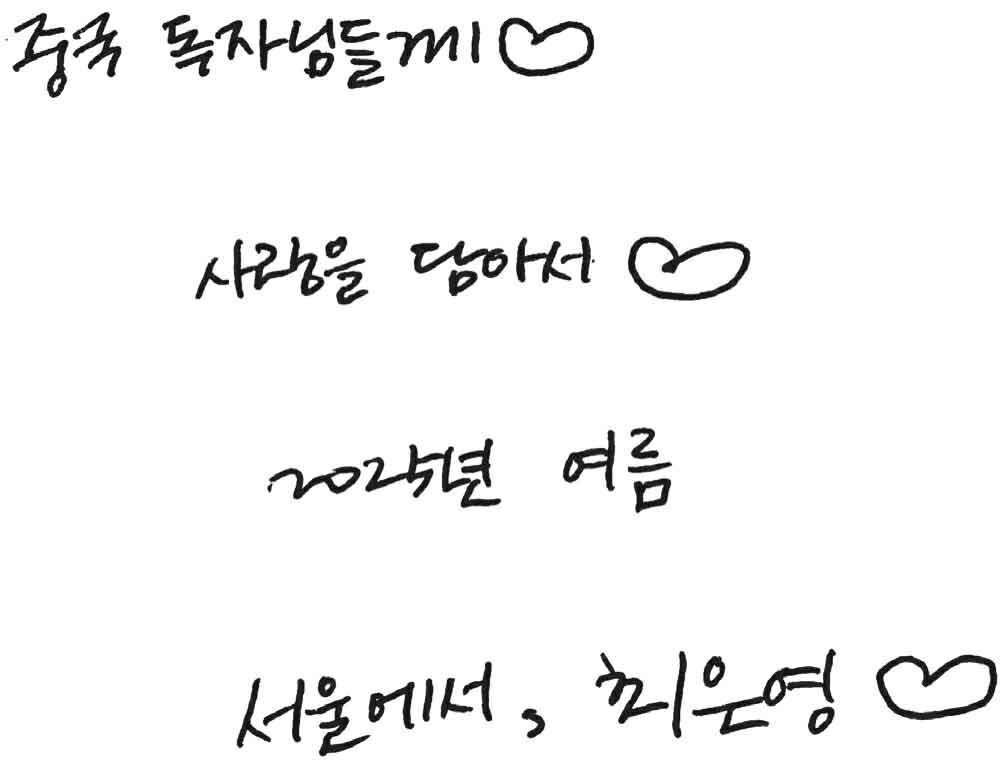 중국 독자님들께♡
사랑을 담아서 ♡
2025년 여름
서울에서, 최은영 ♡